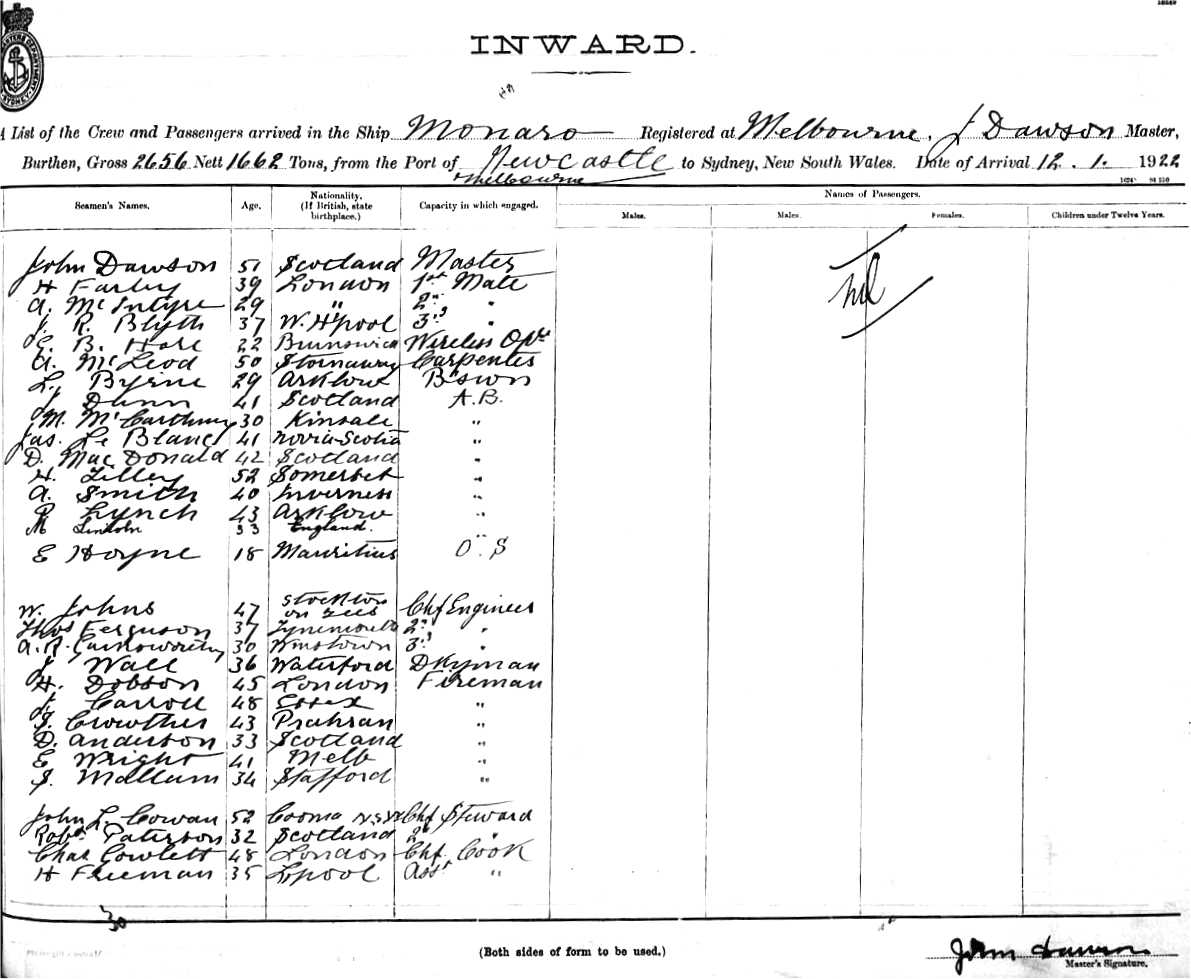 INWARD.
A List of the Crew and Passengers arrived in the Ship Monaro Registered at Melbourne, J Dawson Master,
Burthen, Gross 2656 Nett 1662 Tons, from the Port of Newcastle to Sydney, New South Wales. Date of Arrival 12 . 1. 1922
& Melbourne
Names of Passengers.
Seamen's Names. Age. Nationality. (If British, state birthplace.) Capacity in which engaged. Males. Males. Females. Children under Twelve Years.
John Dawson 51 Scotland Master
nil
H Farley 39 London 1st Mate
A. McIntyre 29 " 2nd "
J. R. Blyth 37 W. H'pool 3rd "
E. B. Hore 22 Brunswick Wireless Opr
A. McLeod 50 Stornaway Carpenter
L. Byrne 29 Arklow B'swn
J Dunn 41 Scotland A.B.
M. McCarthy 30 Kinsale "
Jas. Le Blanc 41 Novia-Scotia "
D. MacDonald 42 Scotland "
H. Tilley 52 Somerset "
A. Smith 40 Inverness "
P. Lynch 43 Arklow "
M Lincoln 33 England. "
E Hoyne 18 Mauritius O. S
W. Johns 47 Stockton on Tees Chf Engineer
Thos Ferguson 37 Tynemouth 2nd "
A. R. 30 3rd "
J Wall 36 Waterford Dkyman
H. Dobson 45 London Fireman
J. Carroll 48 Essex "
J. Crowther 43 Prahran "
D. Anderson 33 Scotland "
E Wright 41 Melb "
J. Mallum 34 Stafford "
John L. Cowan 52 Cooma N.S.W Chf Steward
Robt Paterson 32 Scotland 2nd "
Chas Cowlett 48 London Chf Cook
H Freeman 35 L'pool Asst "
30
(Both sides of form to be used.)
John Dawson
Master's Signature.